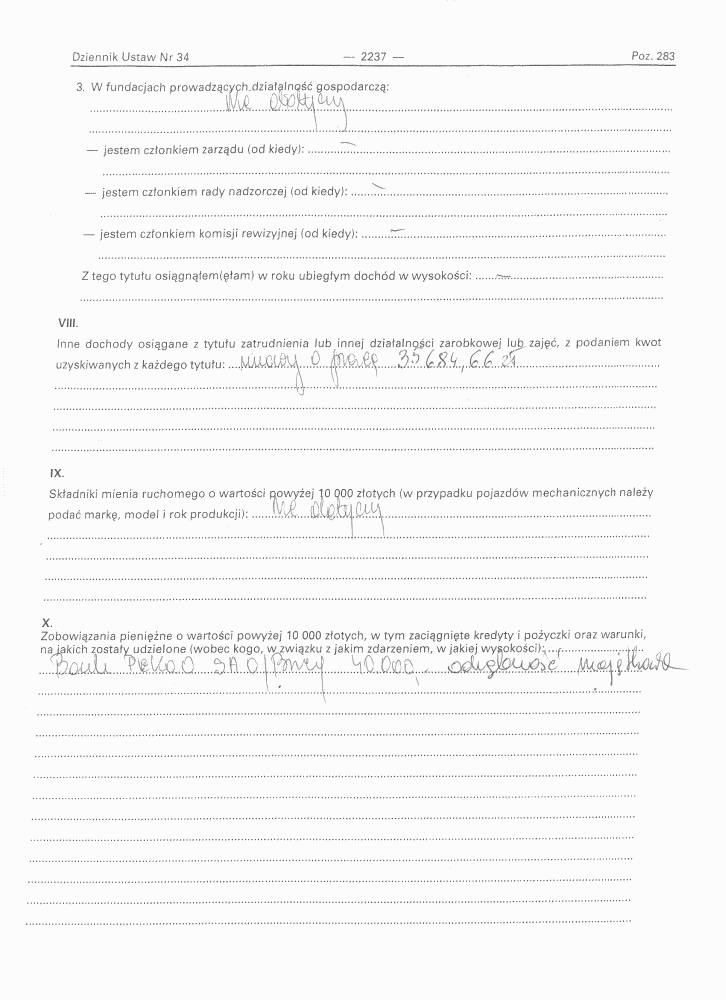 Dziennik Ustaw Nr 34 — 2237 — Poz. 283
3. W fundacjach prowadzących działalność gospodarczą:
nie dotyczy
— jestem członkiem zarządu (od kiedy): —
— jestem członkiem rady nadzorczej (od kiedy): —
— jestem członkiem komisji rewizyjnej (od kiedy): —
Z tego tytułu osiągnąłem(ęłam) w roku ubiegłym dochód w wysokości: —
VIII.
Inne dochody osiągane z tytułu zatrudnienia lub innej działalności zarobkowej lub zajęć, z podaniem kwot
uzyskiwanych z każdego tytułu: umowy o pracę 35684,66 zł
IX.
Składniki mienia ruchomego o wartości powyżej 10 000 złotych (w przypadku pojazdów mechanicznych należy
podać markę, model i rok produkcji): nie dotyczy
X.
Zobowiązania pieniężne o wartości powyżej 10 000 złotych, w tym zaciągnięte kredyty i pożyczki oraz warunki,
na jakich zostały udzielone (wobec kogo, w związku z jakim zdarzeniem, w jakiej wysokości):
Bank PeKaO SA 40.000,-